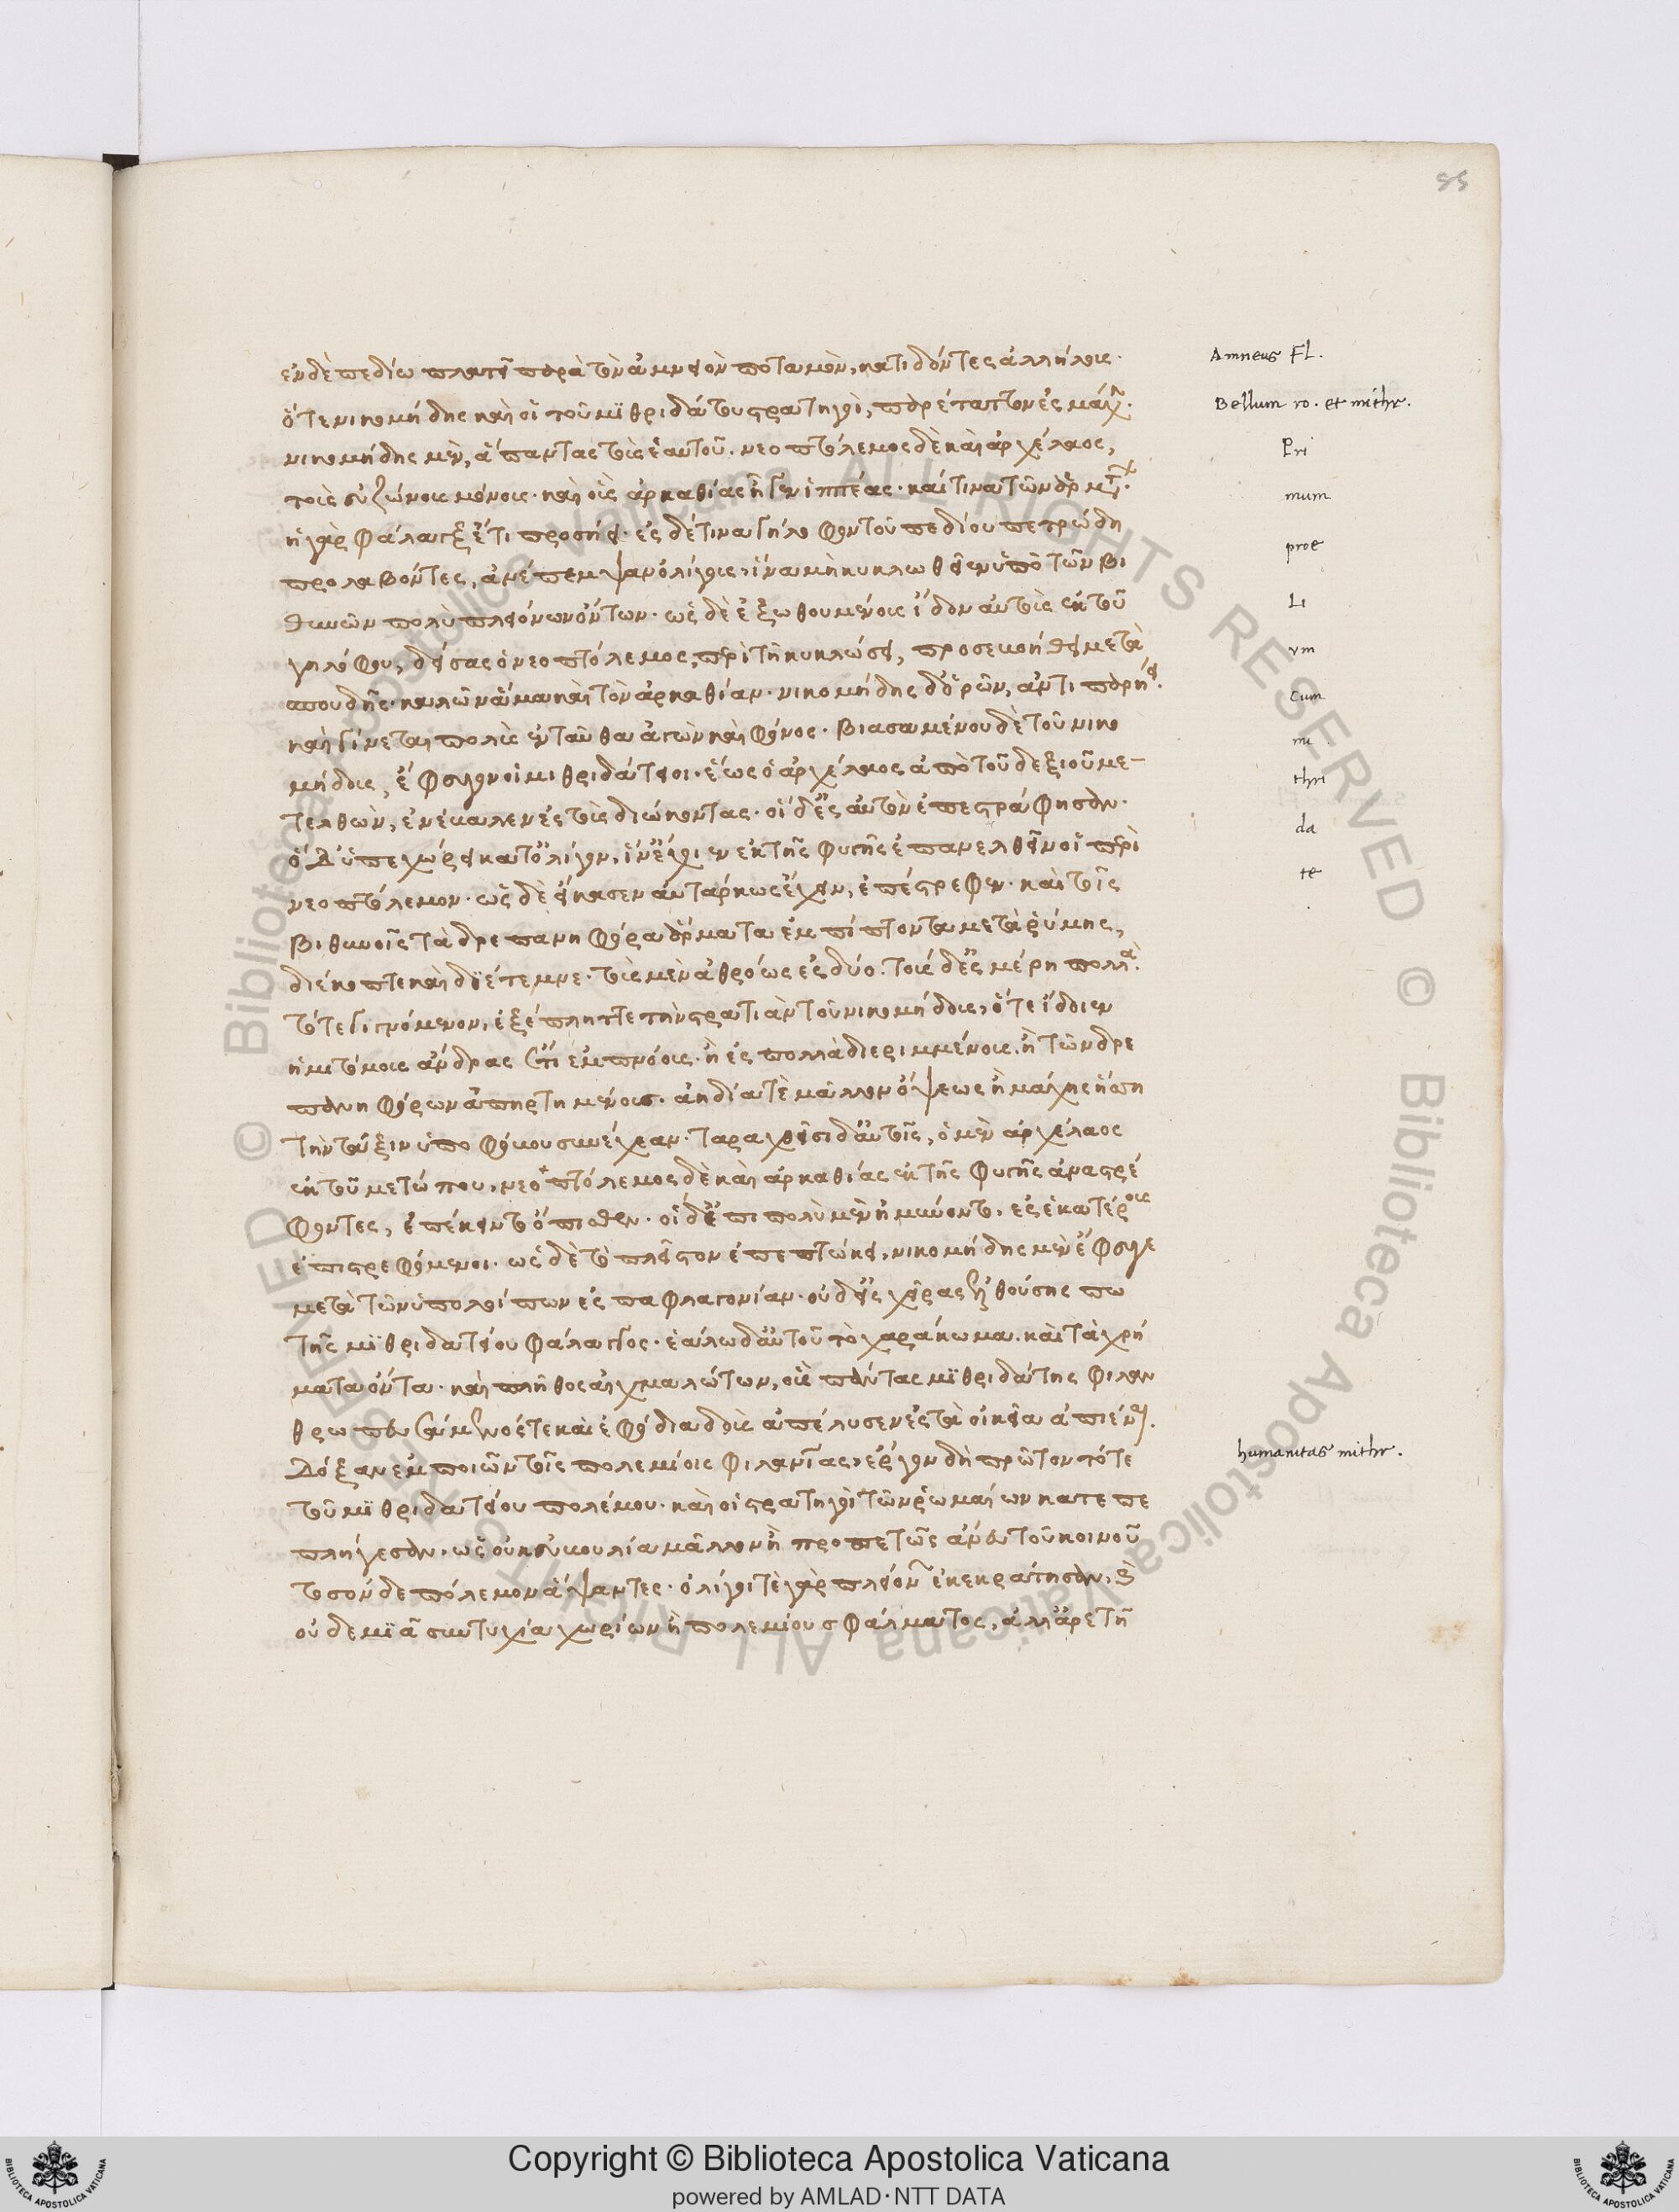 55
ἐν δὲ πεδίω πλατεῖ παρὰ τὸν ἀμνειὸν ποταμὸν, κατιδόντες ἀλλήλους·
ὅ τε νικομήδης καὶ οἱ τοῦ μϊθριδάτου στρατηγοὶ, παρέταττον ἐς μάχην·
νικομήδης μὲν, ἅπαντας τοὺς ἑαυτοῦ. νεοπτόλεμος δὲ καὶ ἀρχέλαος,
τοὺς εὐζώνους μόνους· καὶ οὓς ἀρκαθίας ἦγεν ἱππέας· καί τινα τῶν ἁρμάτων·
ἡ γὰρ φάλαγξ ἔτι προσῄει· ἐς δέ τινα γήλοφον τοῦ πεδίου πετρώδη
προλαβόντες, ἀνέπεμψαν ὀλίγους, ἵνα μὴ κυκλωθεῖεν ὑπὸ τῶν βι
θυνῶν πολὺ πλειόνων ὄντων· ὡς δὲ ἐξωθουμένους ἴδον αὐτοὺς ἐκ τοῦ
γηλόφου, δείσας ὁ νεοπτόλεμος, περὶ τῇ κυκλώσει, προσεβοήθει μετὰ
σπουδῆς· καλῶν ἅμα καὶ τὸν ἀρκαθίαν· νικομήδης δ' ὁρῶν, ἀντιπαρῄει·
καὶ γίνεται πολὺς ἐνταῦθα ἀγὼν καὶ φόνος· βιασαμένου δὲ τοῦ νικο
μήδους, ἔφευγον οἱ μιθριδάτειοι· ἕως ὁ ἀρχέλαος ἀπὸ τοῦ δεξιοῦ με-
τελθὼν, ἐνέβαλεν ἐς τοὺς διώκοντας· οἱ δ' ἐς αὐτὸν ἐπεστράφησαν·
ὁ δ' ὑπεχώρει κατ' ὀλίγον, ἵν' ἔχοιεν ἐκ τῆς φυγῆς ἐπανελθεῖν οἱ περὶ
νεοπτόλεμον· ὡς δὲ εἴκασεν αὐτάρκως ἔχειν, ἐπέστρεφεν· καὶ τοῖς
βιθυνοῖς τὰ δρεπανηφόρα ἅρματα ἐμπίπτοντα μετὰ ῥύμης,
διέκοπτε καὶ διέτεμνε· τοὺς μὲν ἀθρόως ἐς δύο. τοὺς δ' ἐς μέρη πολλά.
τό τε γιγνόμενον, ἐξέπληττε τὴν στρατιὰν τοῦ νικομήδους, ὅτε ἴδοιεν
ἡμιτόμους ἄνδρας ἔτι ἐμπνόους· ἢ ἐς πολλὰ διερριμμένους. ἢ τῶν δρε
πανηφόρων ἀπηρτημένους. ἀηδίᾳ τὲ μᾶλλον ὄψεως ἢ μάχης ἥσσῃ
τὴν τάξιν ὑπὸ φόβου συνέχεαν· ταραχθεῖσι δ' αὐτοῖς, ὁ μὲν ἀρχέλαος
ἐκ τοῦ μετώπου, νεοπτόλεμος δὲ καὶ ἀρκαθίας ἐκ τῆς φυγῆς ἀναστρέ
φοντες, ἐπέκειντο ὄπισθεν· οἱ δ' ἐπὶ πολὺ μὲν ἠμύνοντο, ἐς ἑκατέρους
ἐπιστρεφόμενοι· ὡς δὲ τὸ πλεῖστον ἐπεπτώκει, νικομήδης μὲν ἔφευγε
μετὰ τῶν ὑπολοίπων ἐς παφλαγονίαν· οὐδ' εἰς χεῖρας ἐλθούσης πω
τῆς μϊθριδατείου φάλαγγος· ἑάλω δ' αὐτοῦ τὸ χαράκωμα. καὶ τὰ χρή
ματα ὄντα· καὶ πλῆθος αἰχμαλώτων, οὓς πάντας μϊθριδάτης φιλαν
θρωπευσάμενός τε καὶ ἐφόδια δοὺς ἀπέλυσεν ἐς τὰ οἰκεῖα ἀπιέναι.
δόξαν ἐμποιῶν τοῖς πολεμίοις φιλανθρωπίας, ἔργον δὴ πρῶτον τότε
τοῦ μϊθριδατείου πολέμου· καὶ οἱ στρατηγοὶ τῶν ῥωμαίων κατεπε
πλήγεσαν, ὡς οὐκ εὐβουλίᾳ μᾶλλον ἢ προπετῶς ἄνευ τοῦ κοινοῦ
τοσόνδε πόλεμον ἅψαντες· ὀλίγοι τὲ γὰρ πλειόνων ἐκεκρατήκεσαν, καὶ
οὐδεμϊᾷ συντυχίᾳ χωρίων ἢ πολεμίου σφάλματος, ἀλλ' ἀρετῇ
Amneus Fl.
Bellum ro. et mithr.
Pri
mum
proe
Li
vm
cum
mi
thri
da
te
humanitas mithr.
Copyright © Biblioteca Apostolica Vaticana
powered by AMLAD·NTT DATA